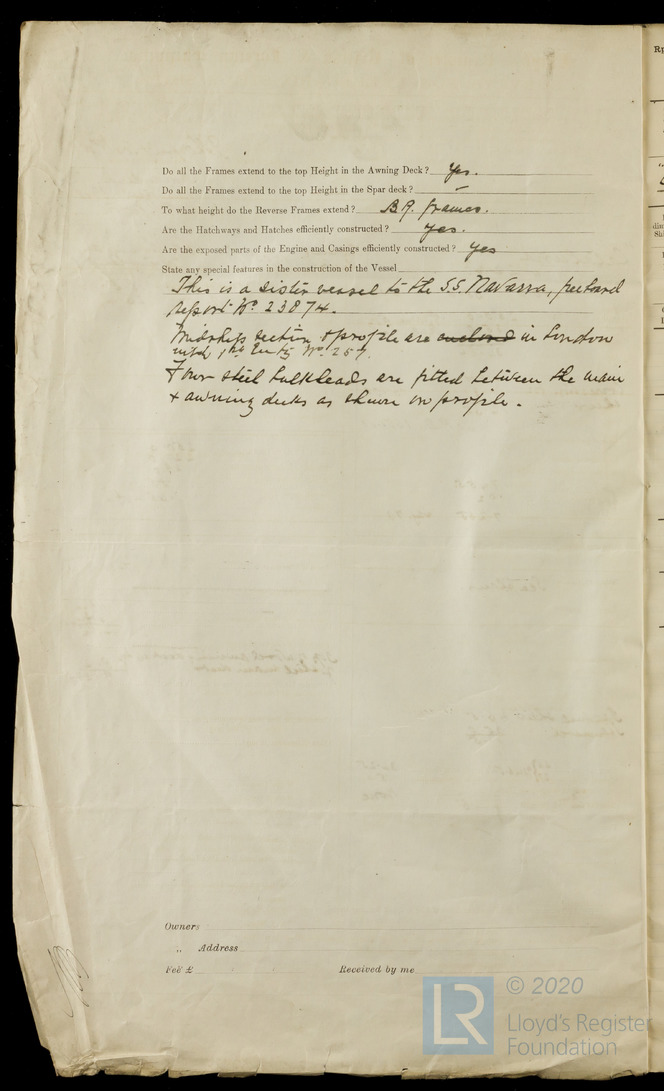 Do all the Frames extend to the top Height in the Awning Deck? Yes.
Do all the Frames extend to the top Height in the Spar deck? –
To what height do the Reverse Frames extend? B.A. frames.
Are the Hatchways and Hatches efficiently constructed? Yes.
Are the exposed parts of the Engine and Casings efficiently constructed? Yes
State any special features in the construction of the Vessel
This is a sister vessel to the S.S. Navarra,
report No. 23874.
Midship section & profile are enclosed in London
with No. 257.
Four steel bulkheads are fitted between the main
& awning decks as shown on profile.
Owners
„ Address
Fee £ Received by me
© 2020
LR
Lloyd's Register
Foundation